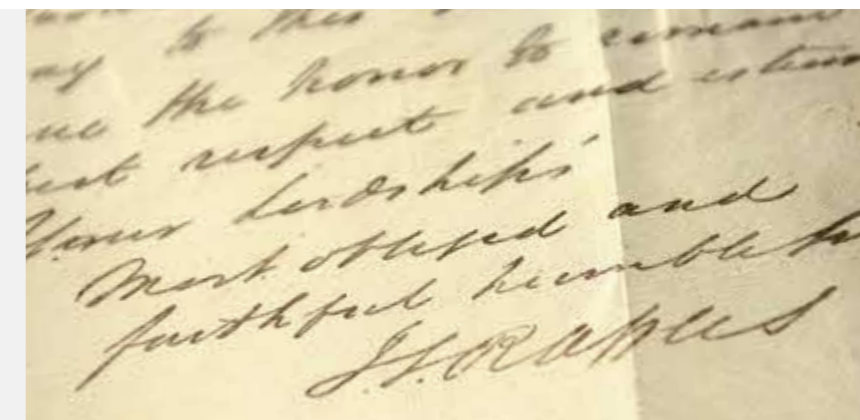 to this
the honor to
respect and esteem
Your Lordships'
Most obliged and
faithful humble
T.S. Raffles